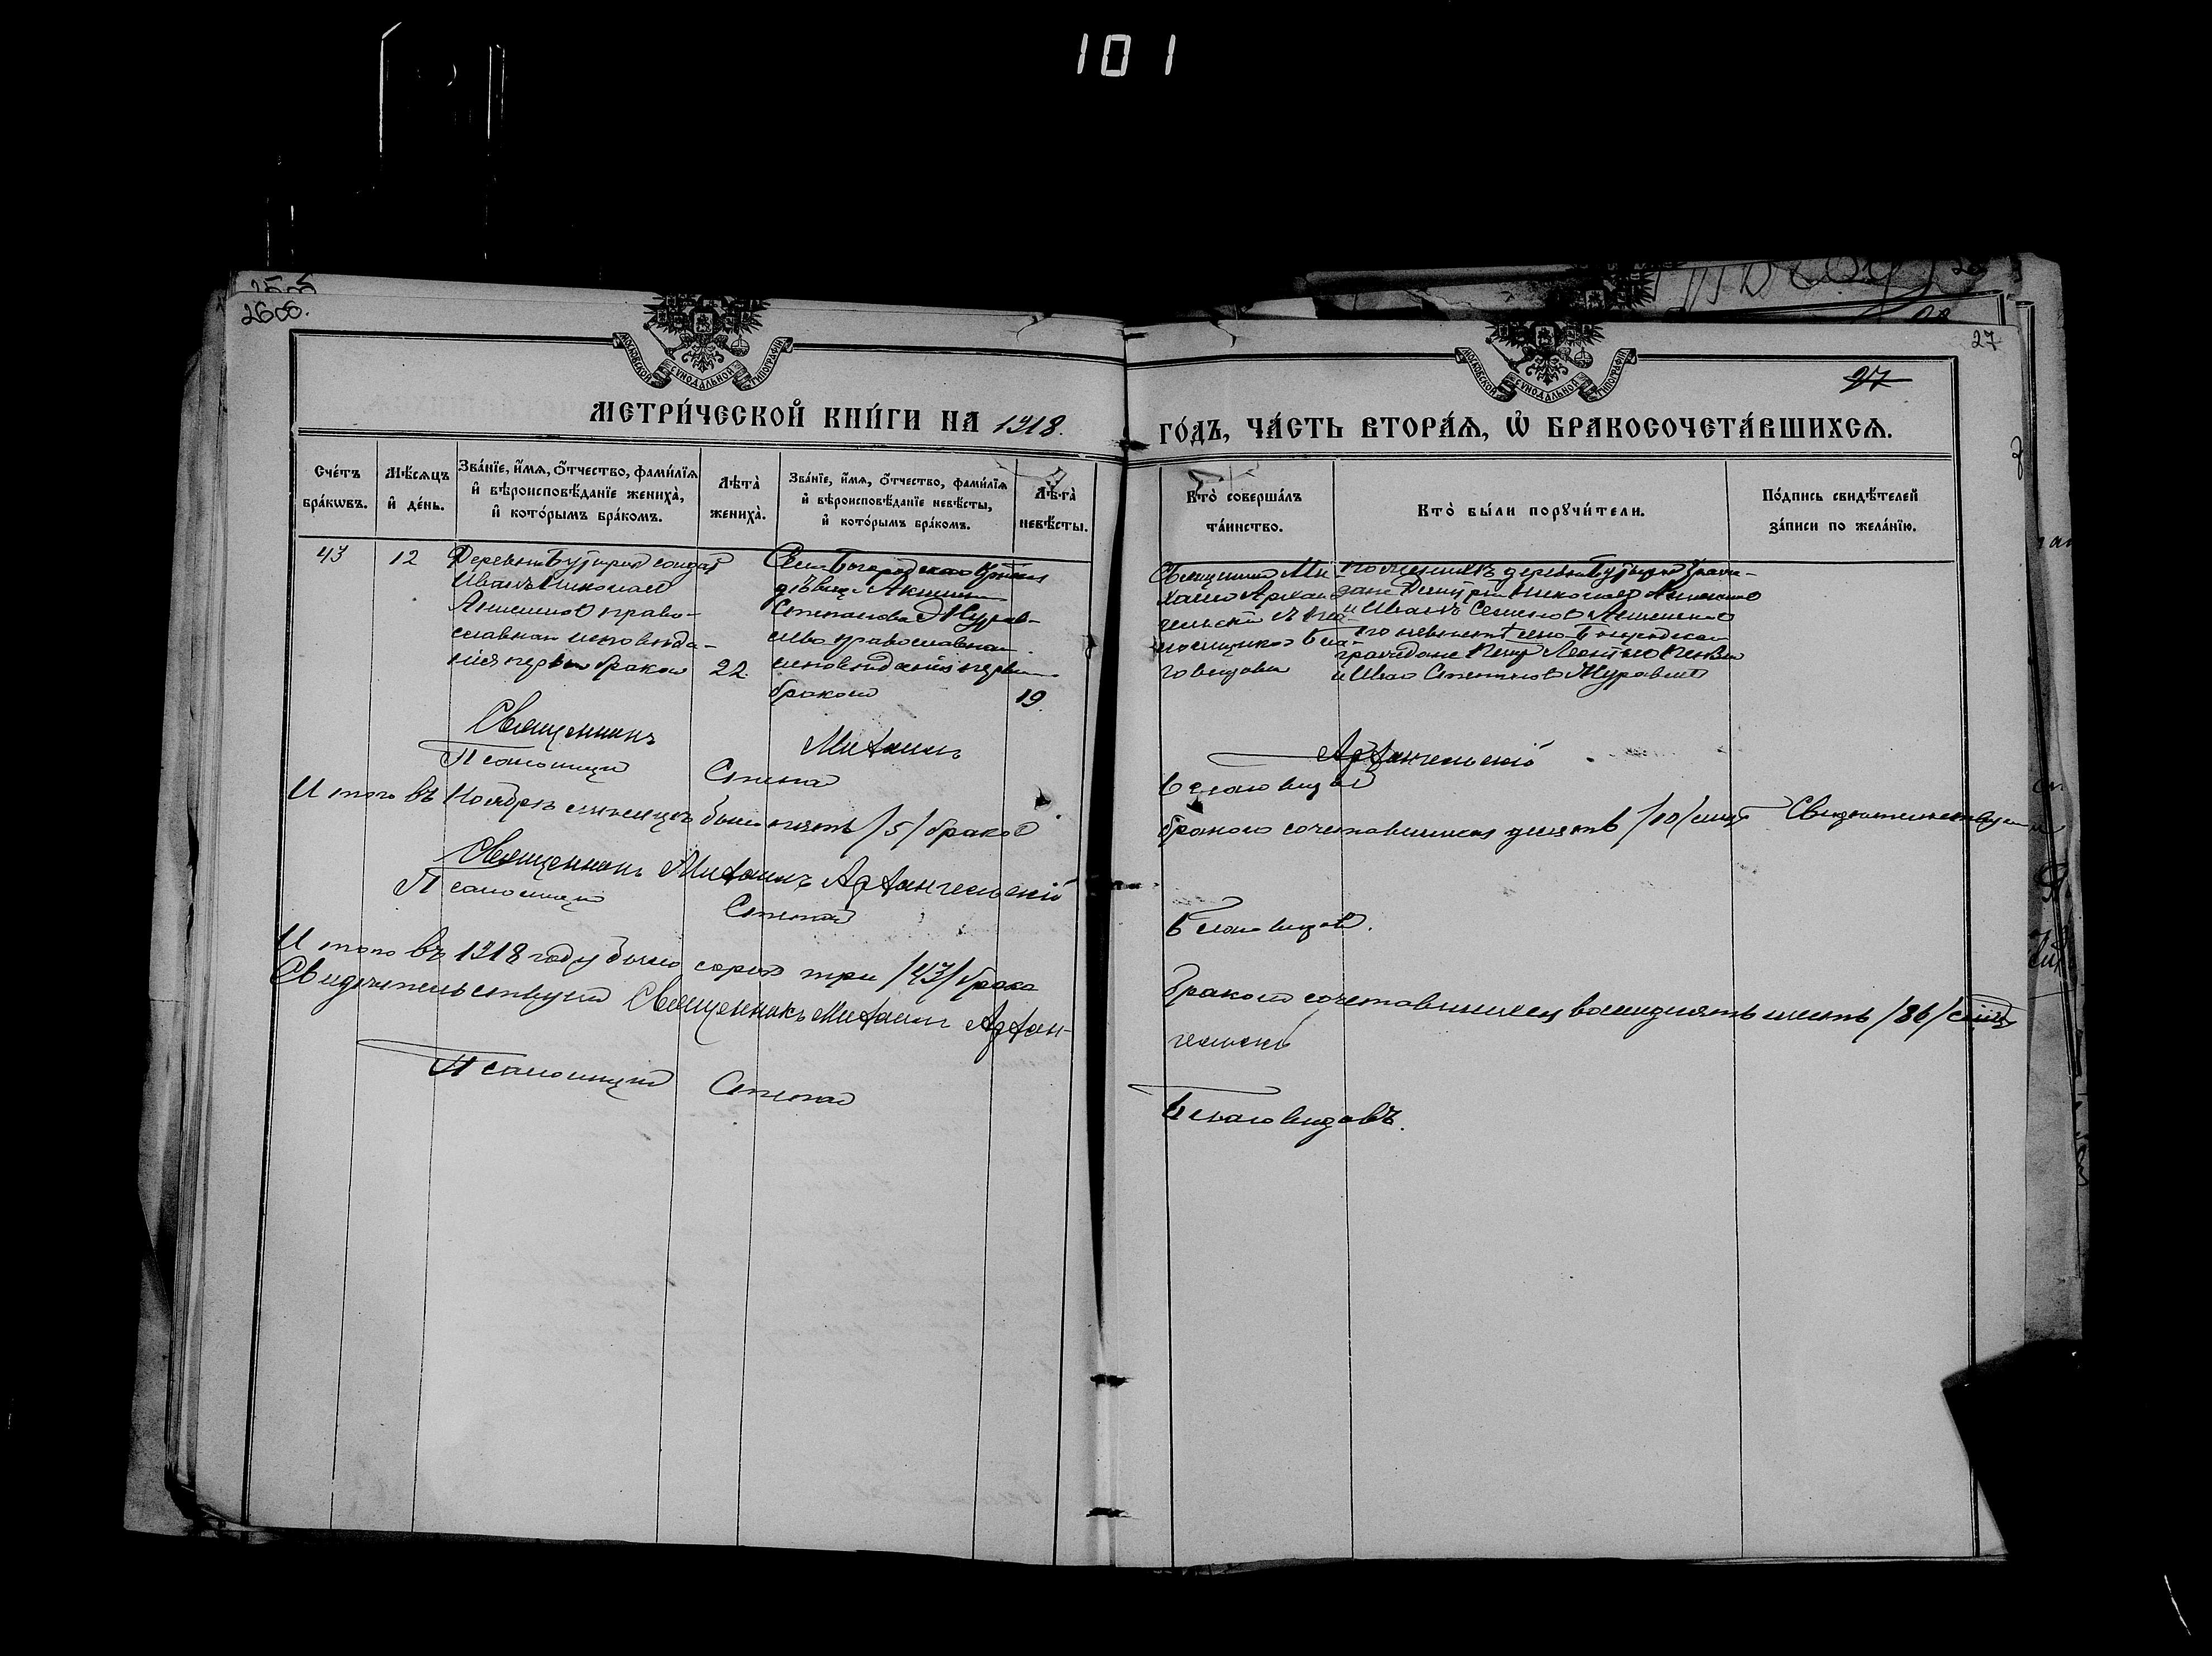 101
2606.
27
27
МОСКОВСКОЙ СѴНОДАЛЬНОЙ ТИПОГРАФІИ
МОСКОВСКОЙ СѴНОДАЛЬНОЙ ТИПОГРАФІИ
МЕТРИ́ЧЕСКОЙ КНИ́ГИ НА 1918.
ГО́ДЪ, ЧА́СТЬ ВТОРА́Я, Ѡ҆ БРАКОСОЧЕТА́ВШИХСЯ.
Сче́тъ бра́кѡвъ.
Мѣ́сяцъ и҆ де́нь.
Зва́нїе, и҆́мя, ѻ҆́тчество, фами́лїя и҆ вѣроисповѣ́данїе жениха̀, и҆ кото́рымъ бра́комъ.
Лѣта̀ жениха̀.
Зва́нїе, и҆́мя, ѻ҆́тчество, фами́лїя и҆ вѣроисповѣ́данїе невѣ́сты, и҆ кото́рымъ бра́комъ.
Лѣта̀ невѣ́сты.
Кто̀ соверша́лъ та́инство.
Кто̀ бы́ли порꙋчи́тели.
По́дпись свидѣ́телей за́писи по жела́нїю.
43
12
Деревни Бутырки солдат
Иванъ Николаев
Анисимов право-
славнаго исповѣда-
нія первым браком
22.
Села Богородскаго
дѣвица
Степанова Журав-
лева православнаго
исповѣданія первым
браком
19.
Священник Ми-
хаил Архан-
гельскій съ пса-
ломщиком Бла-
говидовым
По женихѣ деревни Бутырки граж-
дане Димитрій Николаев Анисимов
и Иванъ Семенов Анисимов
по невѣстѣ села Богородскаго
граждане Петр
и Иван Степанов Журавлев
Священникъ Михаилъ Архангельскій
Псаломщик Степан Благовидов
Итого въ Ноябрѣ мѣсяцѣ было пять /5/ браков
браком сочетавшихся десять /10/ лиц Свидѣтельствуем
Священникъ Михаилъ Архангельскій
Псаломщик Степан Благовидов.
Итого въ 1918 году было сорок три /43/ брака
браком сочетавшихся восемьдесятъ шесть /86/ лиц
Свидѣтельствуем Священникъ Михаилъ Архан-
гельскій
Псаломщик Степан Благовидовъ.